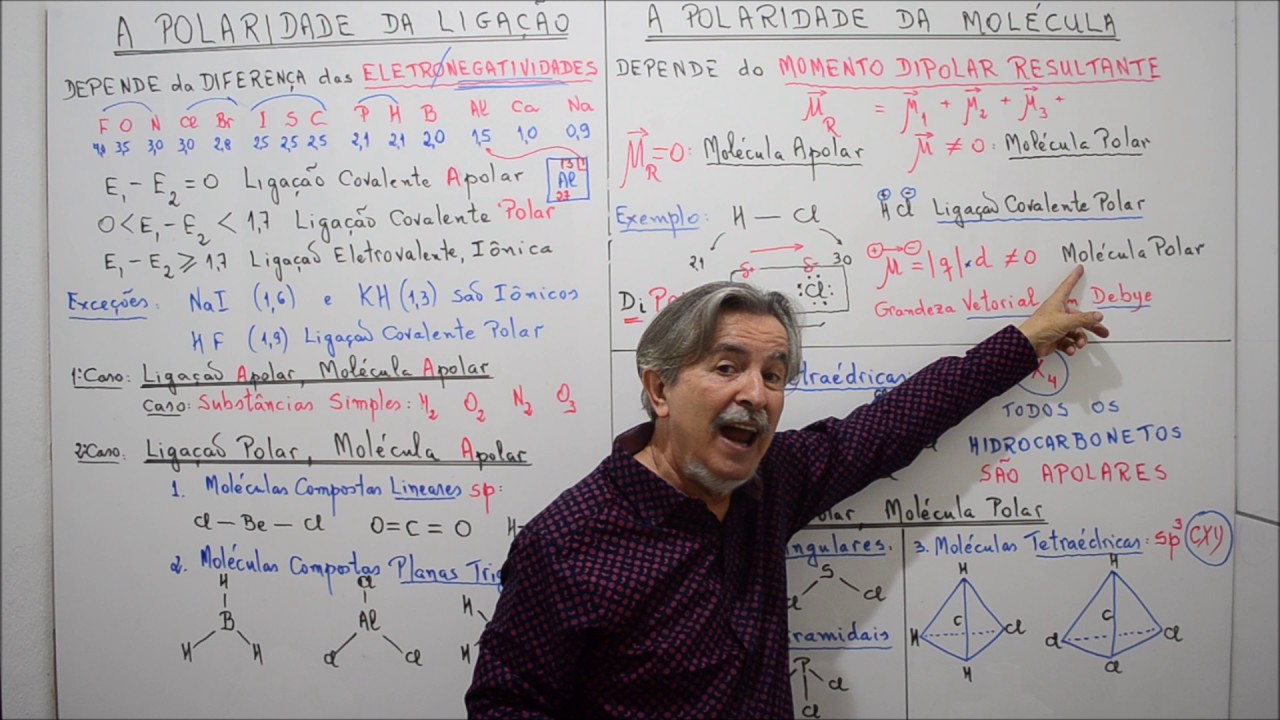 A POLARIDADE DA LIGAÇÃO
DEPENDE da DIFERENÇA das ELETRONEGATIVIDADES
F O N Cl Br I S C P H B Al Ca Na
3,5 3,0 3,0 2,8 2,5 2,5 2,5 2,1 2,1 2,0 1,5 1,0 0,9
13
Al
27
E₁ - E₂ = 0 Ligação Covalente Apolar
0 < E₁ - E₂ < 1,7 Ligação Covalente Polar
E₁ - E₂ ⩾ 1,7 Ligação Eletrovalente, Iônica
Exceções: NaI (1,6) e KH (1,3) são Iônicos
HF (1,9) Ligação Covalente Polar
1º Caso: Ligação Apolar, Molécula Apolar
Caso: Substâncias Simples: H₂ O₂ N₂ O₃
2º Caso: Ligação Polar, Molécula Apolar
1. Moléculas Compostas Lineares sp:
Cl - Be - Cl O = C = O H
2. Moléculas Compostas Planas Trig
H Cl
B Al H
H H Cl Cl H
A POLARIDADE DA MOLÉCULA
DEPENDE do MOMENTO DIPOLAR RESULTANTE
μ_R = μ₁ + μ₂ + μ₃ +
μ_R = 0: Molécula Apolar μ ≠ 0: Molécula Polar
Exemplo: H - Cl H⊕ Cl⊖ Ligação Covalente Polar
2,1 3,0
δ+ δ-
⊕ ⊖
μ = |q| . d ≠ 0 Molécula Polar
Di Cl
Grandeza Vetorial Debye
etraédricas: X₄
TODOS OS
HIDROCARBONETOS
SÃO APOLARES
olar, Molécula Polar
ngulares. 3. Moléculas Tetraédricas: sp³ CXY
S Cl
H H
C C
H Cl Cl Cl
H Cl
ramidais
P Cl
Cl